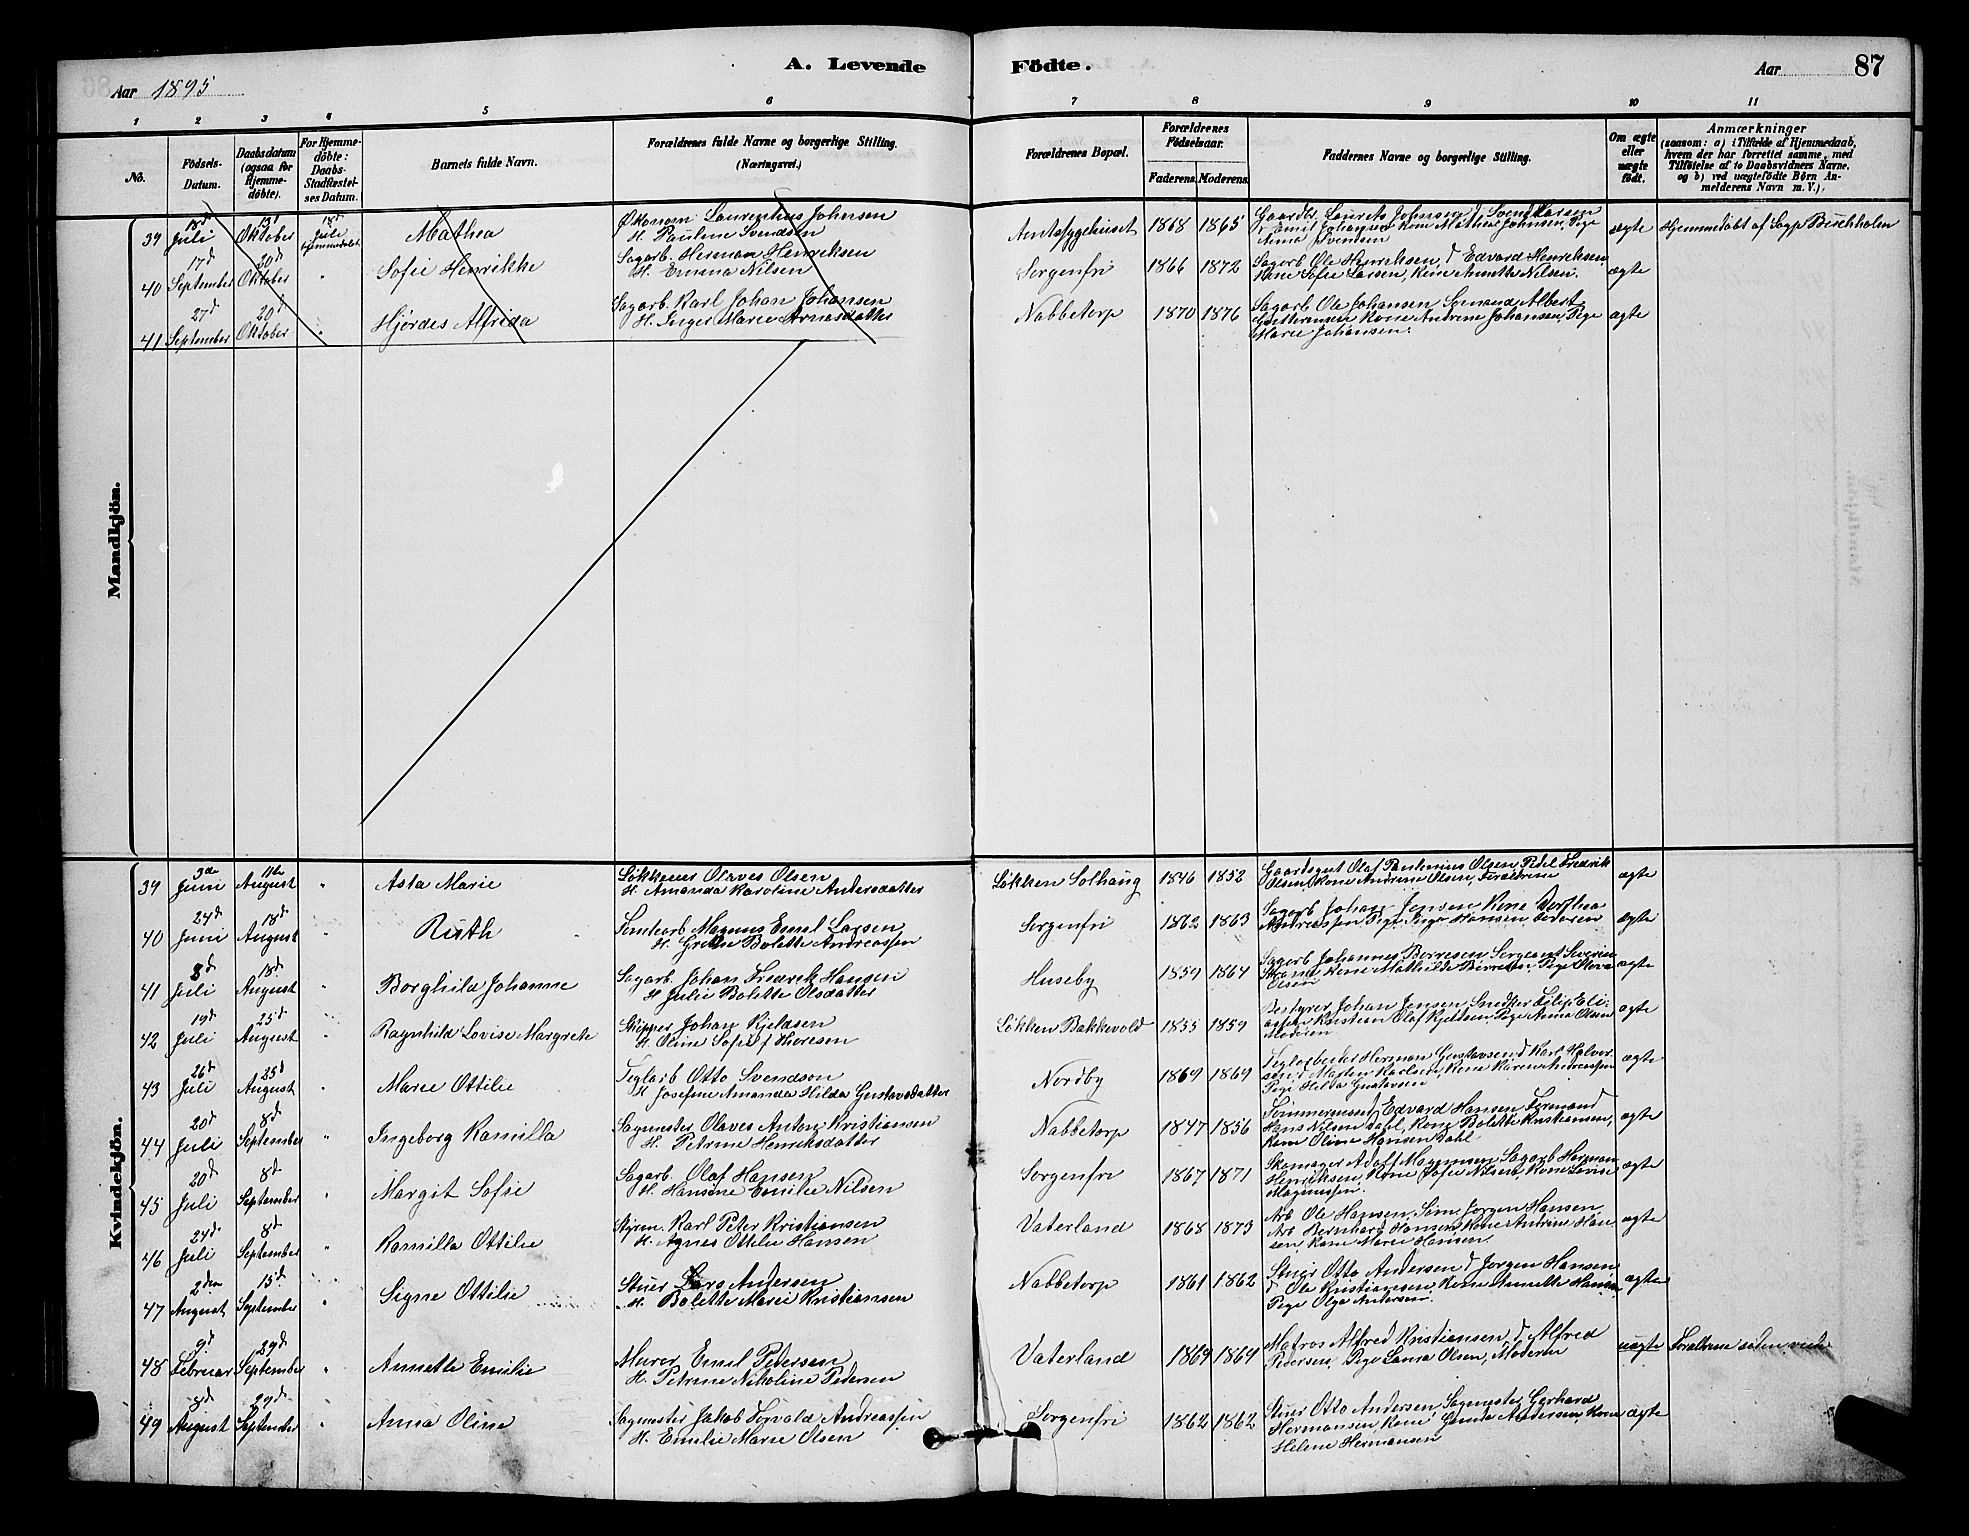 A. Levende Födte.
87
Aar 1895
Aar
1 2 3 4 5 6 7 8 9 10 11
No.
Födsels-Datum.
Daabsdatum (ogsaa for Hjemme-döbte).
For Hjemme-döbte: Daabs-Stadfæstel-ses Datum.
Barnets fulde Navn.
Forældrenes fulde Navne og borgerlige Stilling. (Næringsvei.)
Forældrenes Bopæl.
Forældrenes Födselsaar.
Faderens. Moderens.
Faddernes Navne og borgerlige Stilling.
Om ægte eller uægte födt.
Anmærkninger
(saasom: a) i Tilfælde af Hjemmedaab, hvem der har forrettet samme, med Tilföielse af to Daabsvidners Navne, og b) ved uægtefödte Börn An-melderens Navn m. V.).
Mandkjön.
39 18d Juli 13d Oktober 18d Juli hjemmedøbt Mathea Økonom Laurentius Johnsen H. Pauline Svendsen Amtssygehuset 1868 1865 Gaardbr. Laurits Johnsen, Svend Larsen Emil Johansen Kone Mathea Johnsen, Pige Anna Svendsen ægte Hjemmedøbt af Sogp Buchholm
40 17d September 20d Oktober " Sofie Henrikke Sagarb. Herman Henriksen H. Emma Nilsen Sorgenfri 1866 1872 Sagarb Ole Henriksen, d Edvard Henriksen Kone Sofie Larsen, Kone Annette Nilsen. ægte
41 27d September 20d Oktober " Hjørdes Alfrida Sagarb Karl Johan Johansen H. Inger Marie Arnesdatter Nabbetorp 1870 1876 Sagarb Ole Johansen Sømand Albert Kone Andrine Johansen, Pige Marie Johansen. ægte
Kvindekjön.
39 3die Juni 11te August " Asta Marie Løkkeeier Olaves Olsen H. Amanda Karoline Andersdatter Løkken Solhaug 1846 1852 Gaardsgut Olaf Paulinius Olsen, Pedel Fredrik Olsen, Kone Andrine Olsen, Forældrene ægte
40 24d Juni 18d August " Ruth Tomtearb. Magnus Emil Larsen H. Grethe Bolette Andreassen Sorgenfri 1862 1863 Sagarb Johan Jensen Kone Dorthea Andreassen Pige Inga Hansen Faderen ægte
41 8d Juli 18d August " Borghild Johanne Sagarb. Johan Fredrik Hansen H Julie Bolette Olsdatter Huseby 1859 1864 Sagarb Johannes Børresen Sergeant Severin Kone Mathilde Børresen, Pige Olsen ægte
42 19d Juli 25d August " Ragnhild Lovise Margrete Skipper Johan Kjeldsen H. Oline Sofie Thoresen Løkken Bakkevold 1855 1859 Bestyrer Johan Jensen, Snedker Filip Eliassen Kristian Olaf Kjeldsen, Pige Anna Olsen Moderen ægte
43 26d Juli 25d August " Marie Ottilie Teglarb Otto Svendson H Josefine Amanda Hilda Gustavsdatter Nordby 1869 1869 Teglarbeider Herman Gustavsen d Karl Halvorsen, Martin Karlsen, Kone Karen Andreassen Pige Hilda Gustavsen ægte
44 20d Juli 8d September " Ingeborg Kamilla Sagmester Olaves Anton Kristiansen H. Petrine Henriksdatter Nabbetorp 1847 1856 Tømmermand Edvard Hansen Formand Hans Nilsen Dahl, Kone Bolette Kristiansen, Kone Oline Hansen Dahl ægte
45 20d Juli 8d September " Margit Sofie Sagarb. Olaf Hansen H. Hansine Emilie Nilsen Sorgenfri 1867 1871 Skomager Adolf Magnusen Sagarb Herman Henriksen, Kone Sofie Nilsen, Kone Lovise Magnussen. ægte
46 24d Juli 8d September " Kamilla Ottilie Karl Peter Kristiansen H. Agnes Ottilie Hansen Vaterland 1868 1873 Arb Ole Hansen, Søm. Jørgen Hansen, Arb Bernhard Hansen, Kone Andrine Hansen, Kone Marie Hansen. ægte
47 2den August 15d September " Signe Ottilie Stuer Lars Andersen H. Bolette Marie Kristiansen Nabbetorp 1861 1862 Stuer Otto Andersen d Jørgen Hansen d Ole Kristiansen, Kone Annette Hansen, Pige Olga Andersen. ægte
48 9d Februar 29d September " Annette Emilie Murer Emil Pedersen H. Petrine Nikoline Pedersen Vaterland 1869 1869 Matros Alfred Kristiansen, d Alfred Pedersen, Pige Laura Olsen, Moderen uægte Forældrene siden viede
49 8d August 29d September " Anna Oline Sagmester Jakob Torvald Andreassen H. Emilie Marie Olsen Sorgenfri 1862 1862 Stuer Otto Andersen, Sagmester Gerhard Hermansen, Kone Andersen, Kone Helene Hermansen ægte